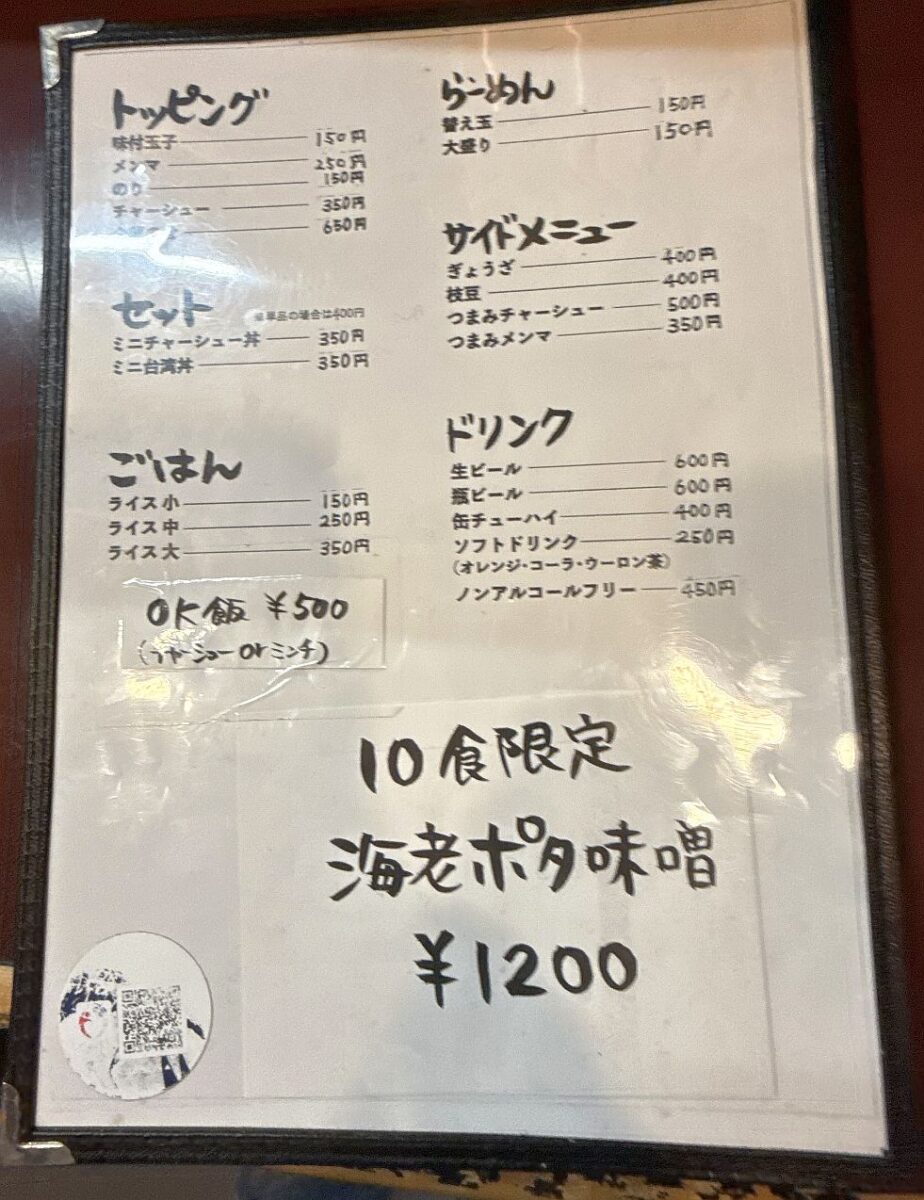 トッピング
味付玉子 150円
メンマ 250円
のり 150円
チャーシュー 350円
650円
セット ※単品の場合は400円
ミニチャーシュー丼 350円
ミニ台湾丼 350円
ごはん
ライス 小 150円
ライス 中 250円
ライス 大 350円
OK飯 ¥500
(チャーシュー or ミンチ)
らーめん
替え玉 150円
大盛り 150円
サイドメニュー
ぎょうざ 400円
枝豆 400円
つまみチャーシュー 500円
つまみメンマ 350円
ドリンク
生ビール 600円
瓶ビール 600円
缶チューハイ 400円
ソフトドリンク 250円
(オレンジ・コーラ・ウーロン茶)
ノンアルコールフリー 450円
10食限定
海老ポタ味噌
¥1200